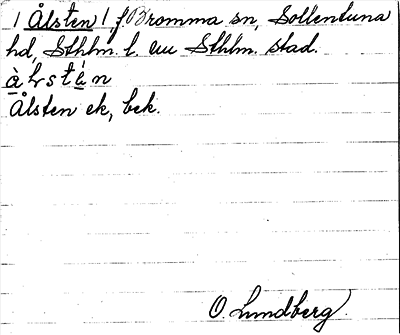 / Ålsten / f. Bromma sn, Sollentuna
hd, Sthlm. l. nu Sthlm. stad.
Ålsten ek, bek.
O. Lundberg